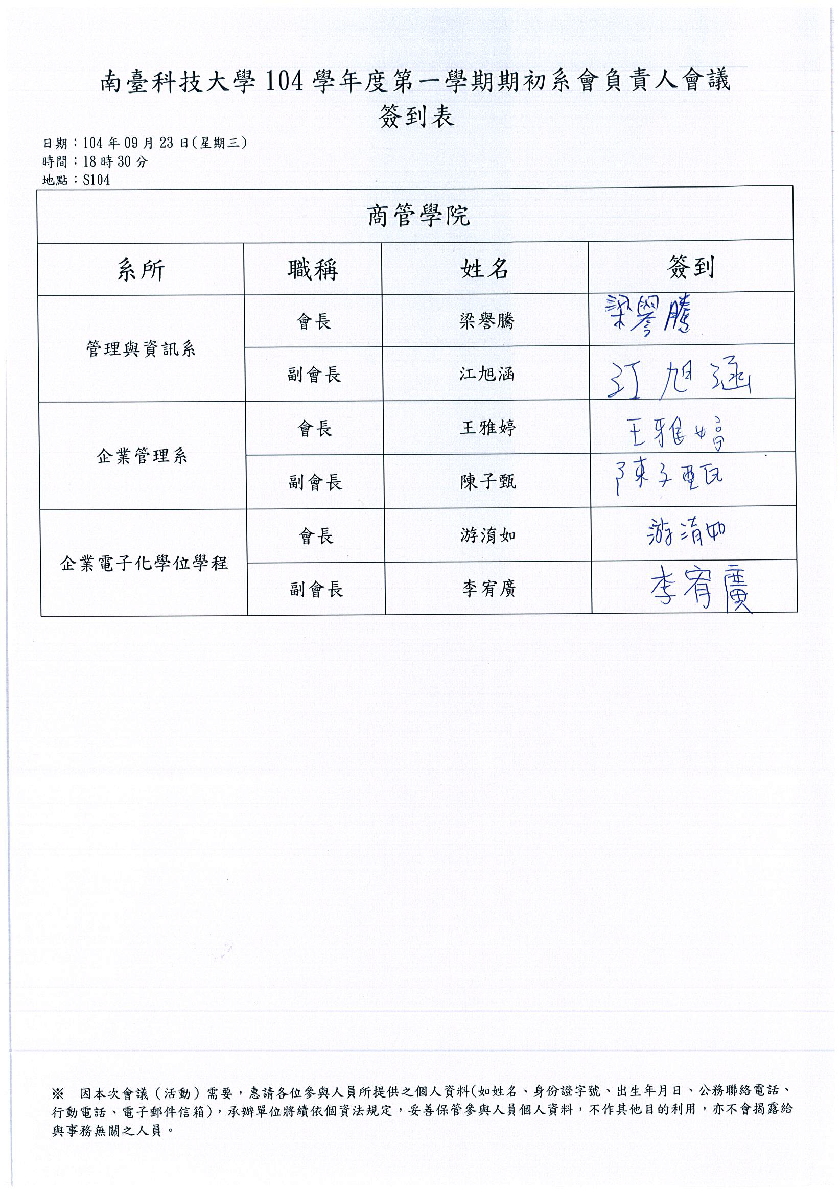 南臺科技大學 104 學年度第一學期期初系會負責人會議
簽到表
日期：104 年 09 月 23 日(星期三)
時間：18 時 30 分
地點：S104
商管學院
系所 職稱 姓名 簽到
管理與資訊系 會長 梁譽騰 梁譽騰
副會長 江旭涵 江旭涵
企業管理系 會長 王雅婷 王雅婷
副會長 陳子甄 陳子甄
企業電子化學位學程 會長 游淯如 游淯如
副會長 李宥廣 李宥廣
※ 因本次會議（活動）需要，惠請各位參與人員所提供之個人資料(如姓名、身份證字號、出生年月日、公務聯絡電話、
行動電話、電子郵件信箱)，承辦單位將續依個資法規定，妥善保管參與人員個人資料，不作其他目的利用，亦不會揭露給
與事務無關之人員。